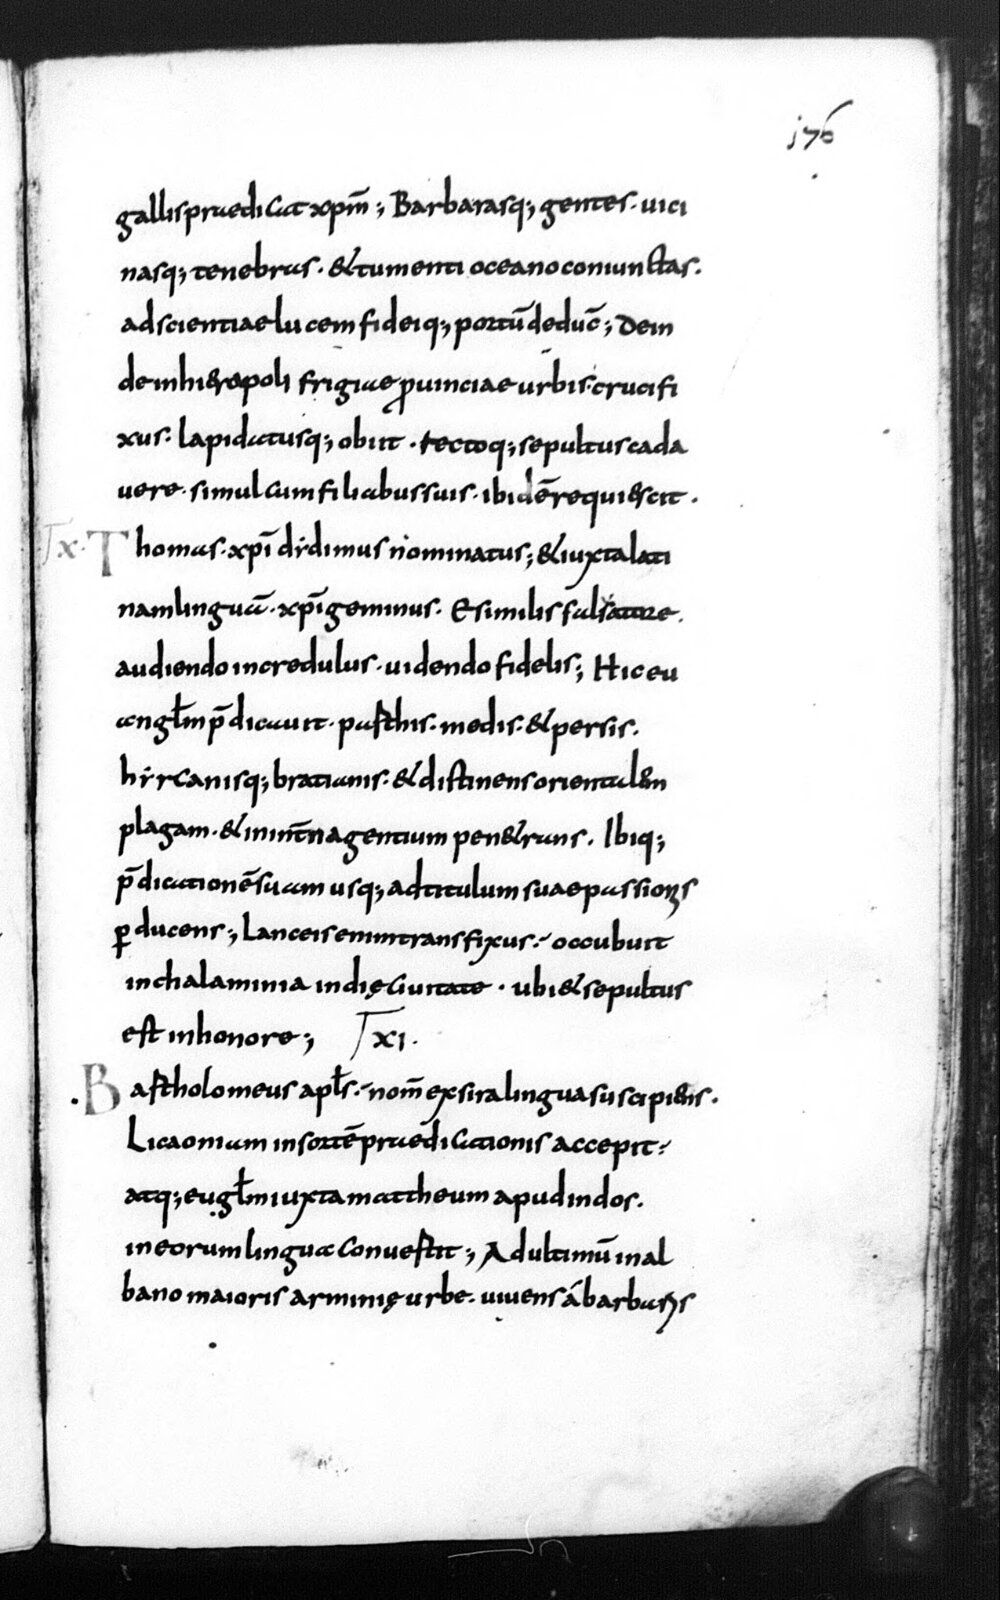 176
gallis praedicat xpm̄; Barbarasq; gentes · uici
nasq; tenebras · & tumenti oceano coniunctas.
ad scientiae lucem fideiq; portū deduc̄; Dein
de in hierapoli frigiae ꝓuinciae urbis · crucifi
xus · lapidatusq; obiit · rectoq; sepultus cada
uere · simul cum filiabus suis · ibidē requiescit .
X · Thomas · xpī dẏdimus nominatus; & iuxta lati
nam linguā · xpī geminus · & similis saluatore .
audiendo incredulus · uidendo fidelis; Hic eu
angłm p̄dicauit · parthis · medis · & persis .
hẏrcanisq; bratianis · & distinens orientalem
plagam · & inint̄na gentium pen&rans . Ibiq;
p̄dicationē suam usq; ad titulum suae passionis
ꝑducens; Lanceis enim transfixus · occubuit
in chalaminia indię ciuitate · ubi & sepultus
est in honore; XI ·
· Bartholomeus apłs · nom̄ ex sira lingua suscipiens .
Licaoniam in sortē praedicationis accepit ·
atq; eugłm iuxta mattheum apud indos .
in eorum lingua conuertit; Ad ultimū in al
bano maioris arminię urbe . uiuens á barbaris